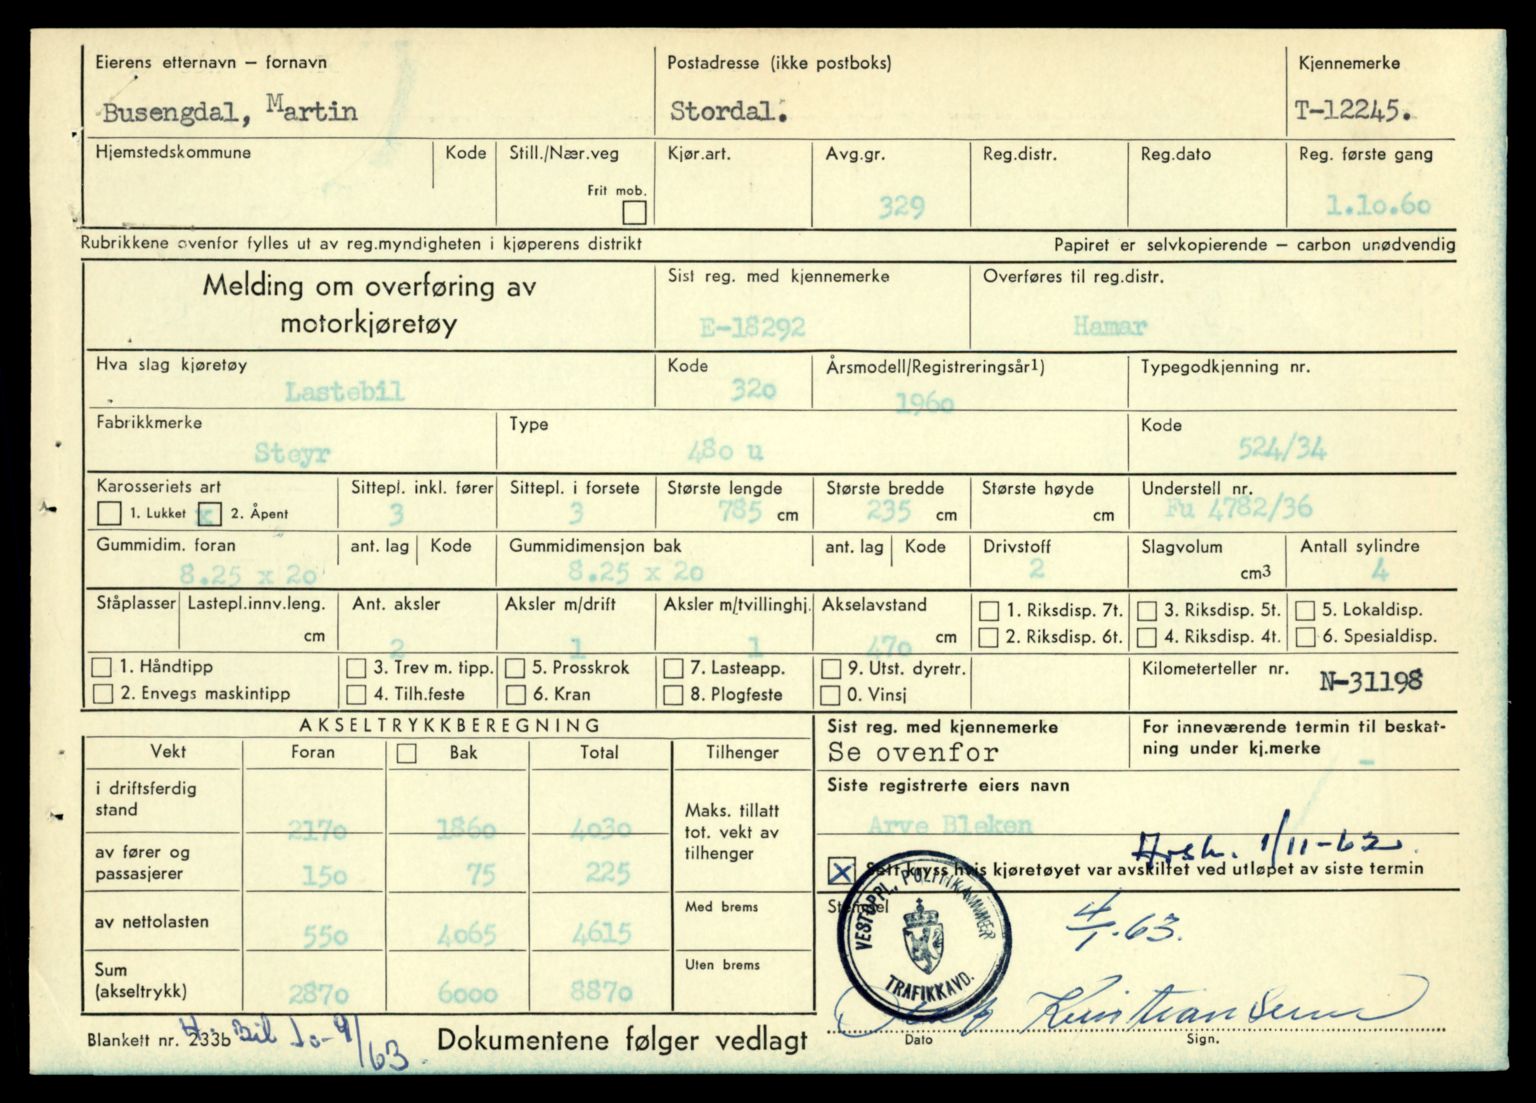 Eierens etternavn – fornavn Postadresse (ikke postboks) Kjennemerke
Busengdal, Martin Stordal. T-12245.
Hjemstedskommune Kode Still./Nær.veg Kjør.art. Avg.gr. Reg.distr. Reg.dato Reg. første gang
Frit mob.
329 1.10.60
Rubrikkene ovenfor fylles ut av reg.myndigheten i kjøperens distrikt Papiret er selvkopierende – carbon unødvendig
Melding om overføring av Sist reg. med kjennemerke Overføres til reg.distr.
motorkjøretøy E-18292 Hamar
Hva slag kjøretøy Kode Årsmodell/Registreringsår1) Typegodkjenning nr.
Lastebil 320 1960
Fabrikkmerke Type Kode
Steyr 480 u 524/34
Karosseriets art Sittepl. inkl. fører Sittepl. i forsete Største lengde Største bredde Største høyde Understell nr.
1. Lukket x 2. Åpent 3 3 785 cm 235 cm cm Fu 4782/36
Gummidim. foran ant. lag Kode Gummidimensjon bak ant. lag Kode Drivstoff Slagvolum Antall sylindre
8.25 x 20 8.25 x 20 2 cm3 4
Ståplasser Lastepl.innv.leng. Ant. aksler Aksler m/drift Aksler m/tvillinghj. Akselavstand 1. Riksdisp. 7t. 3. Riksdisp. 5t. 5. Lokaldisp.
cm 2 1 1 470 cm 2. Riksdisp. 6t. 4. Riksdisp. 4t. 6. Spesialdisp.
1. Håndtipp 3. Trev m. tipp. 5. Prosskrok 7. Lasteapp. 9. Utst. dyretr. Kilometerteller nr.
2. Envegs maskintipp 4. Tilh.feste 6. Kran 8. Plogfeste 0. Vinsj N-31198
AKSELTRYKKBEREGNING Sist reg. med kjennemerke For inneværende termin til beskat-
Vekt Foran Bak Total Tilhenger Se ovenfor ning under kj.merke
-
i driftsferdig Siste registrerte eiers navn
stand 2170 1860 4030 Maks. tillatt
tot. vekt av Arve Bleken
tilhenger
av fører og 1/11-62
passasjerer 150 75 225 x Sett kryss hvis kjøretøyet var avskiltet ved utløpet av siste termin
av nettolasten 550 4065 4615 Med brems Stempel
VESTOPPL. POLITIKAMMER
TRAFIKKAVD.
4/1.63.
Sum Uten brems
(akseltrykk) 2870 6000 8870
Kristiansen
Blankett nr. 233b Bil 10-9/63. Dokumentene følger vedlagt Dato Sign.